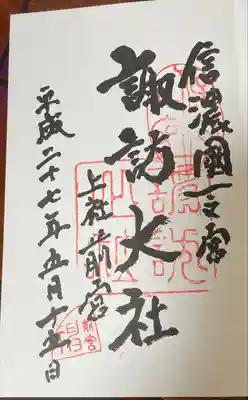 信濃國一之宮
諏訪大社
上社前宮
平成二十七年五月十五日